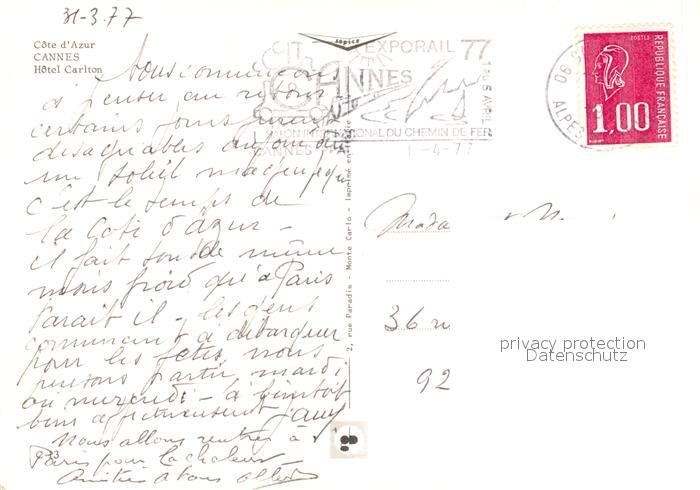 31-3.77
Côte d'Azur
CANNES
Hôtel Carlton
Nous commençons
à penser au retour
certains jours
désagréables aujourd'hui
un soleil magnifique
c'est le temps de
la Côte d'Azur -
il fait tout de même
moins froid qu'à Paris
parait il - les gens
commencent à débarquer
pour les fêtes, nous
pensons partir mardi
ou mercredi - à bientôt
bien affectueusement
Nous allons rentrer à
Paris pour la chaleur
Amitiés à vous
sapica
EXPORAIL 77
CANNES
1 au 5 AVRIL
SALON INTERNATIONAL DU CHEMIN DE FER
CANNES
1-4-77
06
ALPES
POSTES
REPUBLIQUE FRANÇAISE
1,00
2, rue Paradis - Monte Carlo - Imprimé en
Mada
36 r
92
privacy protection
Datenschutz